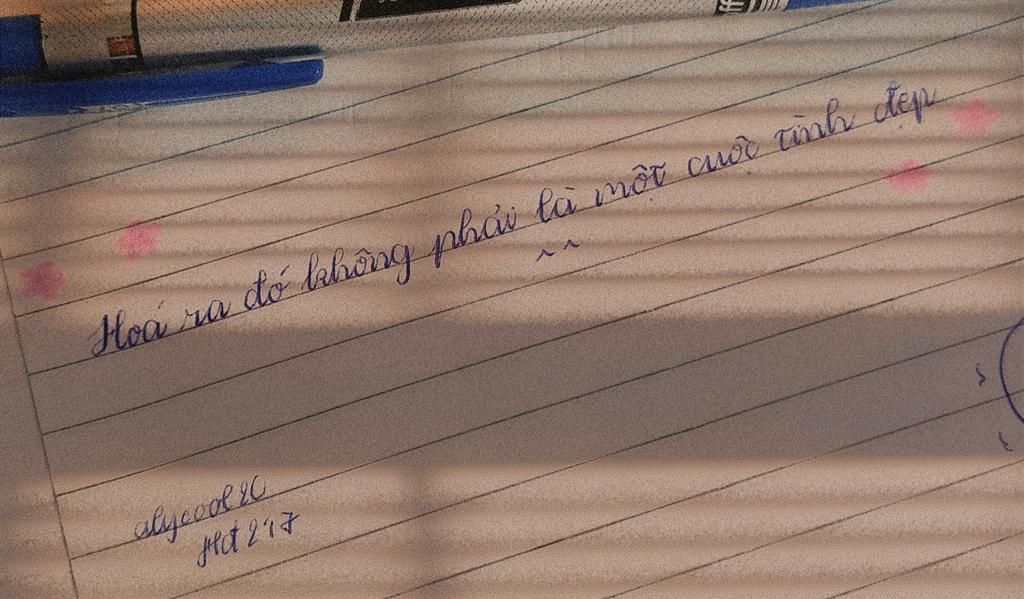 Hoá ra đó không phải là một cuộc tình đẹp
^ ^
alycool 20